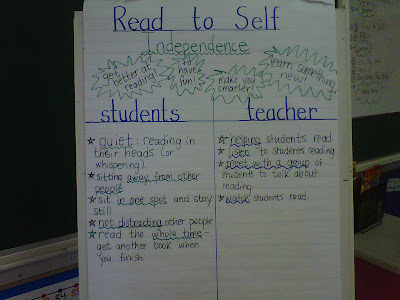 Read to Self
Independence
get
better at
reading!
to
have
fun!
make you
smarter!
learn something
new!
students
★ quiet: reading in
their heads (or
whispering)
★ sitting away from other
people
★ sit in one spot and stay
still
★ not distracting other people
★ read the whole time-
get another book when
you finish.
teacher
★ helping students read
★ listen to students reading
★ meet with a group of
students to talk about
reading.
★ students read.